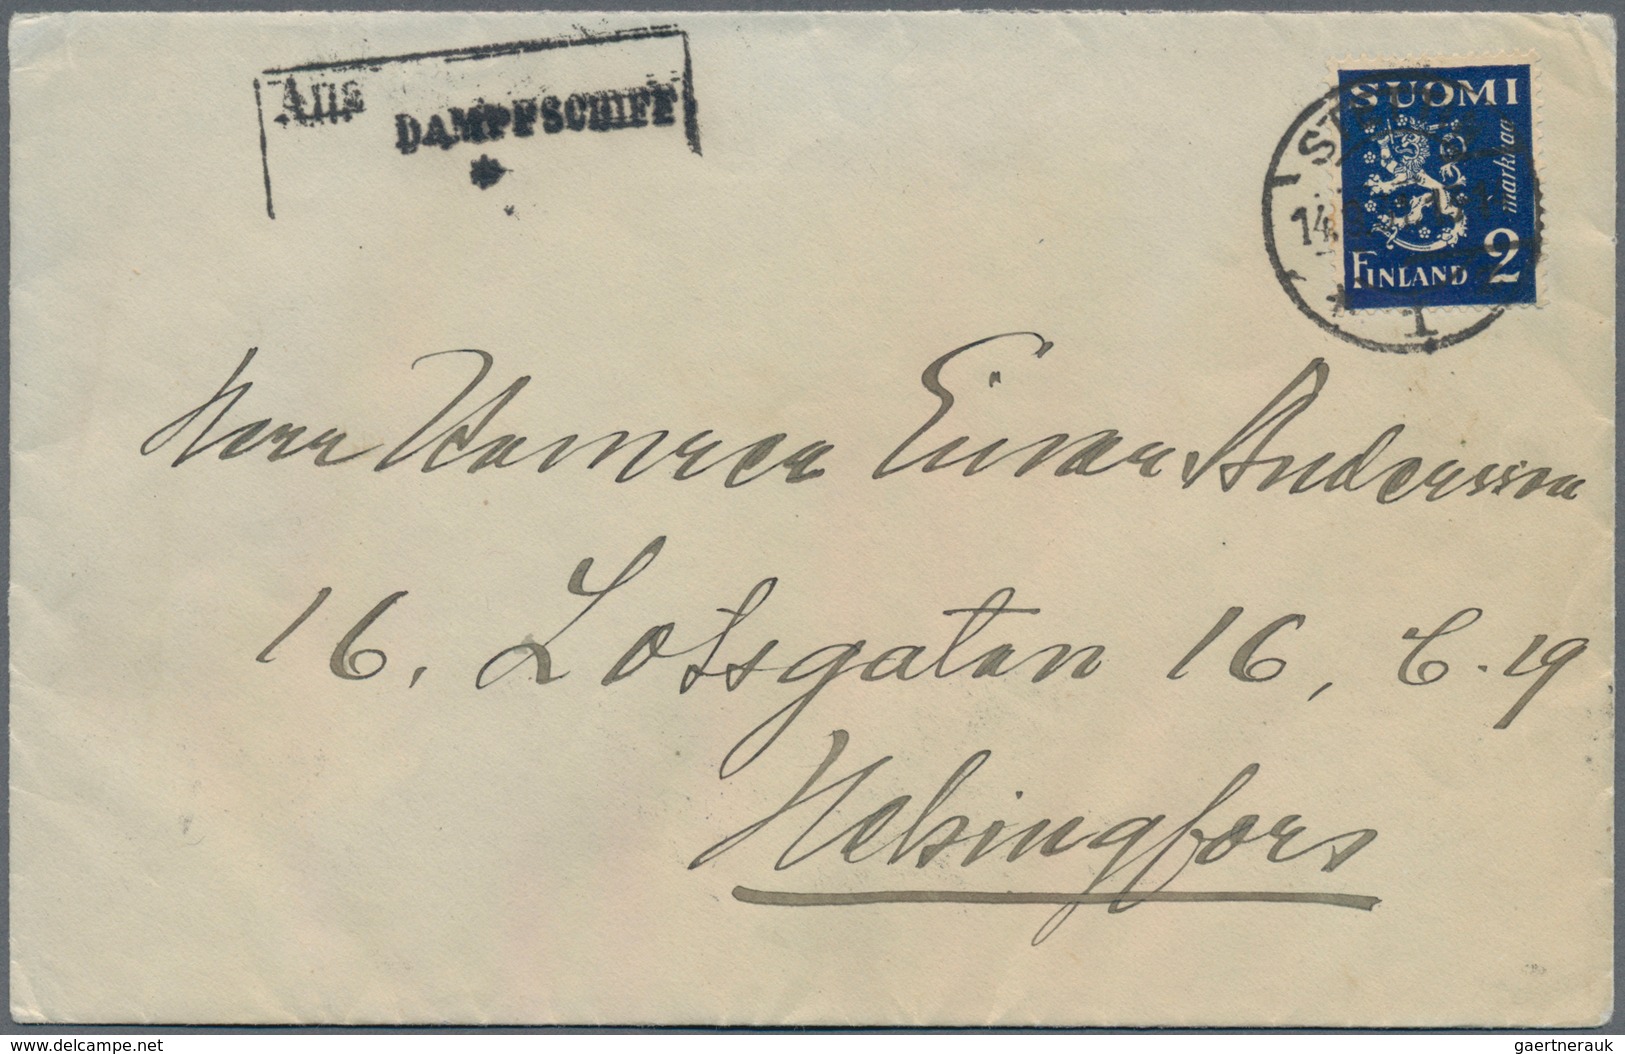 Aus
DAMPFSCHIFF
SUOMI
markkaa
FINLAND 2
1
Herr Kamrer Einar Andersson
16, Lotsgatan 16, C. 19
Helsingfors
www.delcampe.net
gaertnerauk